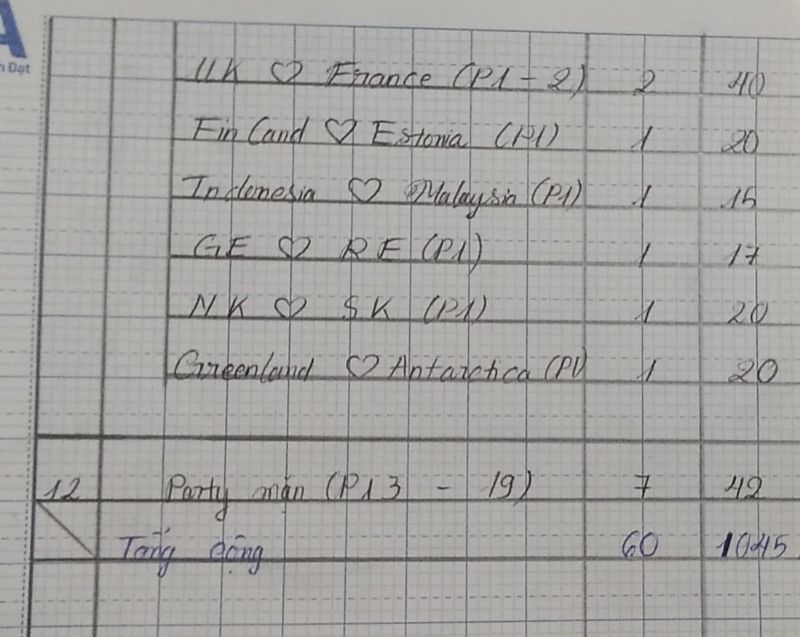 A
h Đạt
UK ♡ France (P1-2) 2 40
Finland ♡ Estonia (P1) 1 20
Indonesia ♡ Malaysia (P1) 1 15
GE ♡ RE (P1) 1 17
NK ♡ SK (P1) 1 20
Greenland ♡ Antarctica (P1) 1 20
12 Party mặn (P13 - 19) 7 42
Tổng cộng 60 1045